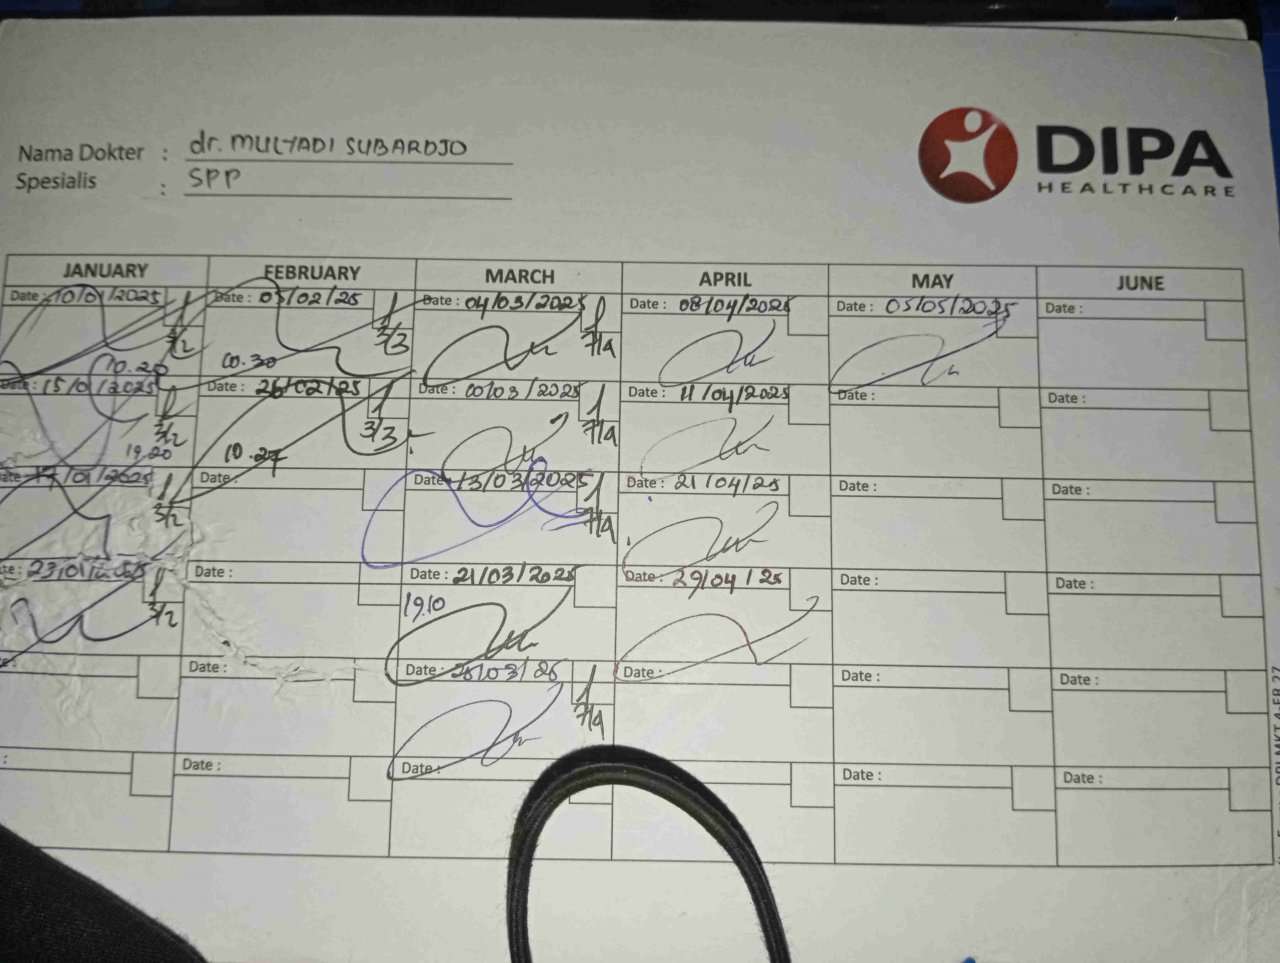 Nama Dokter : dr. MULYADI SUBARDJO
Spesialis : SPP
DIPA
HEALTHCARE
JANUARY FEBRUARY MARCH APRIL MAY JUNE
Date : 10/01/2025 Date : 03/02/25 Date : 04/03/2025 Date : 08/04/2025 Date : 05/05/2025 Date :
3/2 3/3 7/4
10.20 10.30
Date : 15/01/2025 Date : 26/02/25 Date : /03/2025 Date : 11/04/2025 Date : Date :
3/2 3/3 7/4
19.20 10.27
17/01/2025 Date : Date : 13/03/2025 21/04/25 Date : Date :
3/2 7/4
23/01/2025 Date : Date : 21/03/2025 Date : 29/04/25 Date : Date :
3/2 19.10
Date : Date : /03/25 Date : Date : Date :
7/4
: Date : Date : Date : Date :